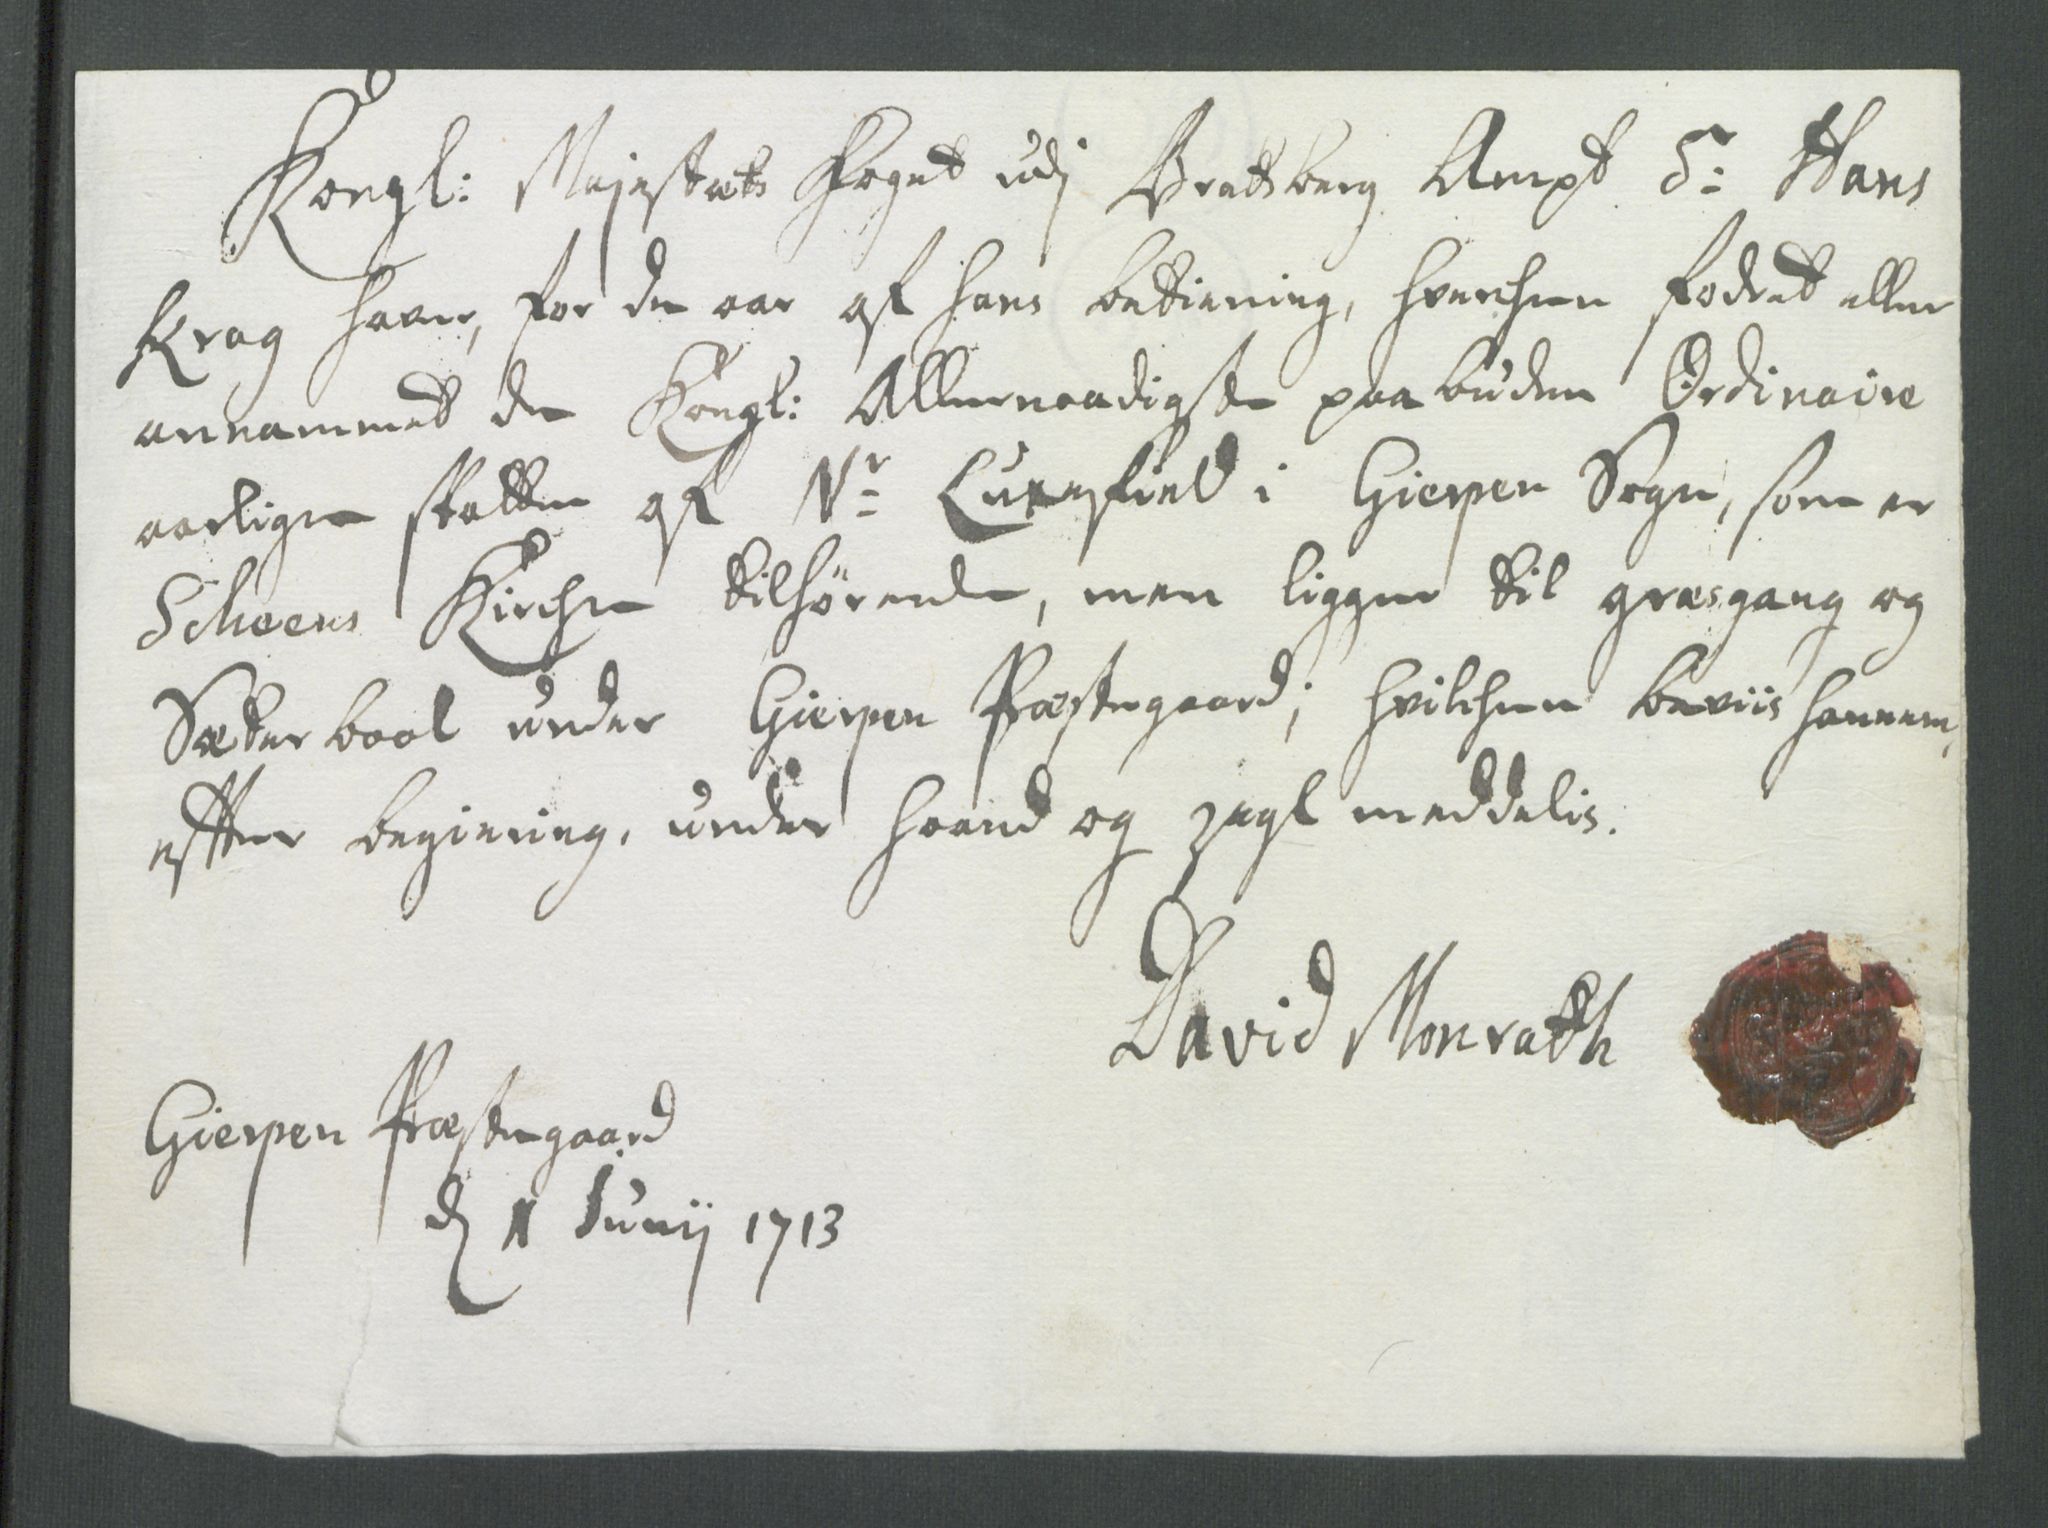 Kongl: Majestæts Foget udj Bratsberg Ampt Sr: Hans
Krag haver, for de aar af hans betiening, hverchen fodret eller
annammet de Kongl: Allernaadigste paabudne Ordinaire
aarlige skatter af Nr: Luxefield i Gierpen Sogn, som er
Scheens Kirche tilhørende, men ligger til græsgang og
Sæterbool under Gierpen Præstegaard; hvilchen beviis hannem,
effter begiering, under haand og zegl meddelis.
David Monrath
Gierpen Præstegaard
d 11 Junij 1713